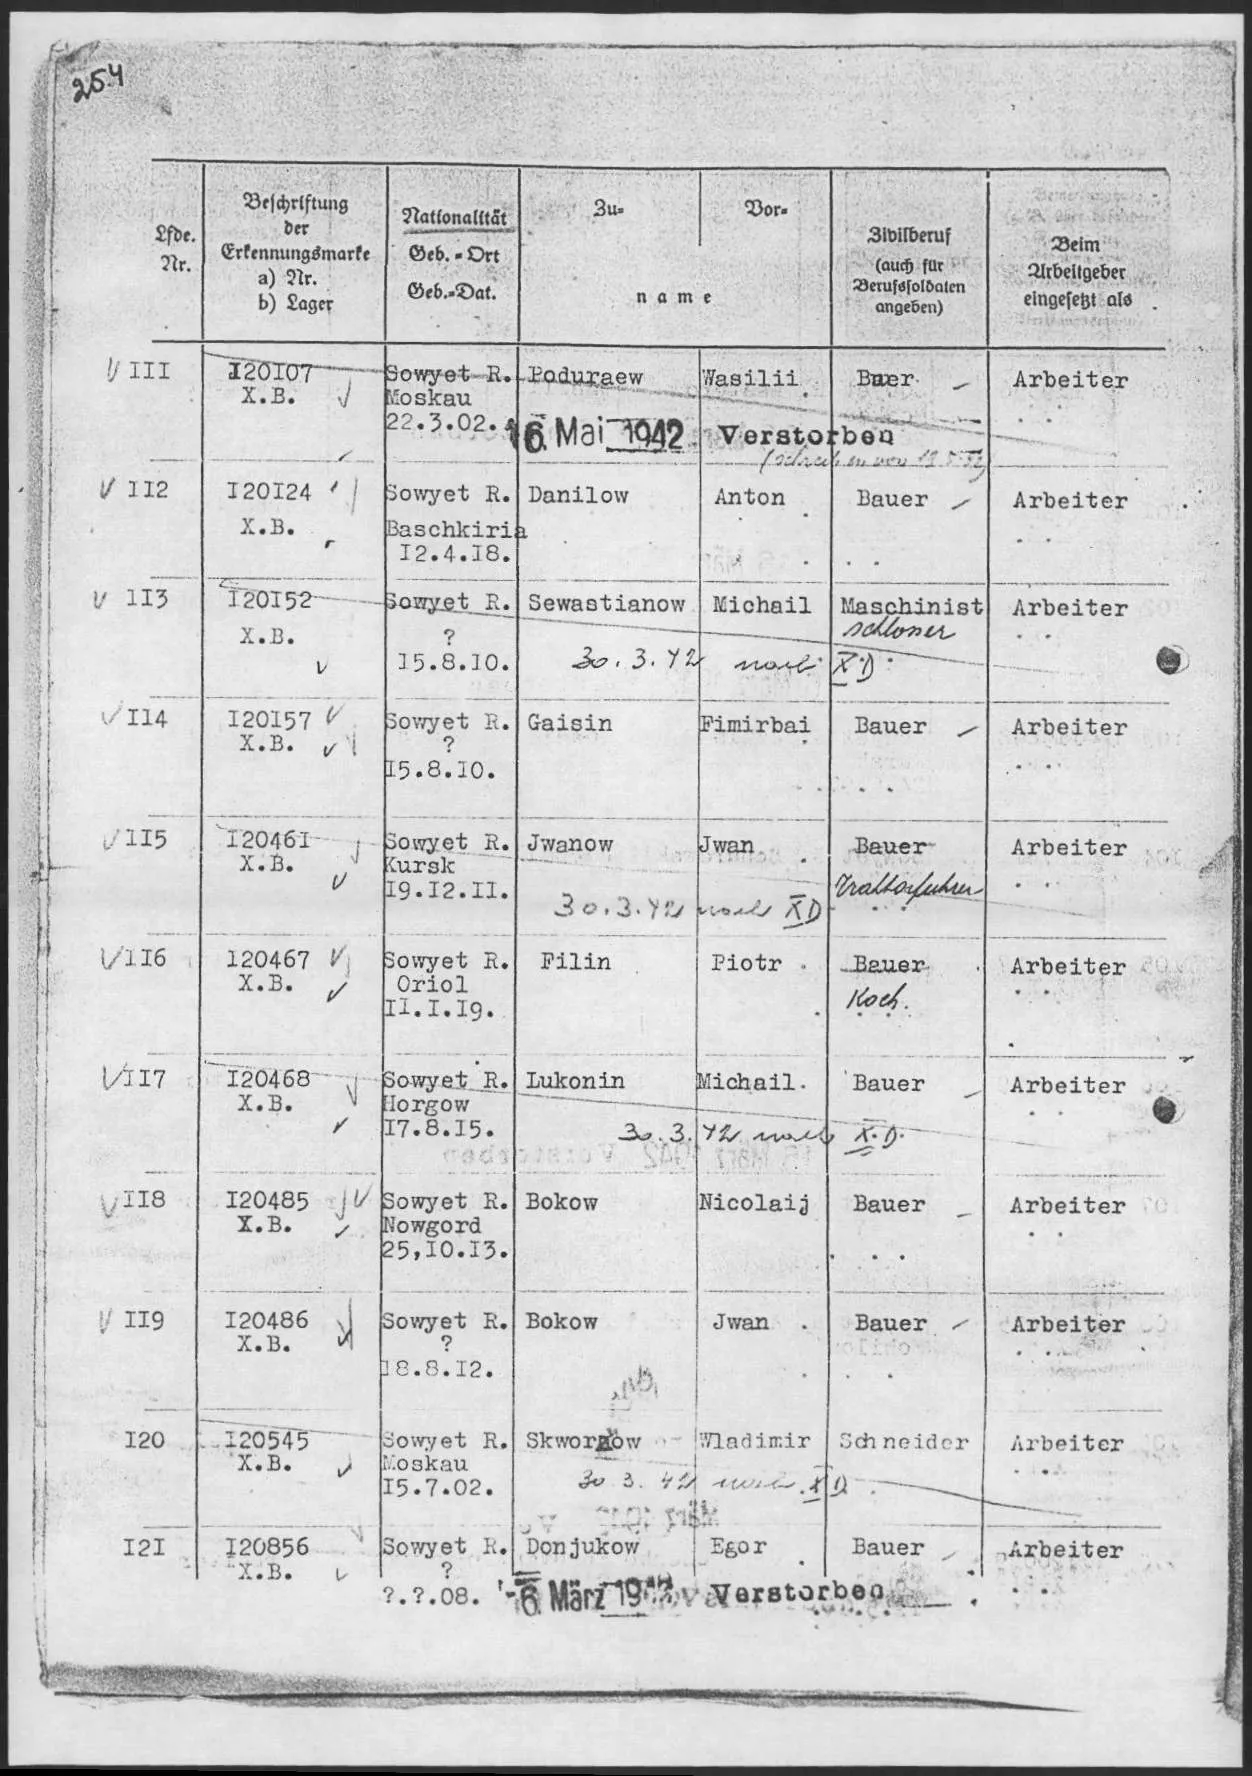 254
Lfde. Nr.
Beschriftung der Erkennungsmarke a) Nr. b) Lager
Nationalität Geb.-Ort Geb.-Dat.
Zu- Vor-
name
Zivilberuf (auch für Berufssoldaten angeben)
Beim Arbeitgeber eingesetzt als
III I20I07 Sowyet R. Poduraew Wasilii Bauer Arbeiter
X.B. Moskau
22.3.02. 16. Mai 1942 Verstorben
II2 I20I24 Sowyet R. Danilow Anton Bauer Arbeiter
X.B. Baschkiria
I2.4.I8.
II3 I20I52 Sowyet R. Sewastianow Michail Maschinist Arbeiter
schlosser
X.B. ?
I5.8.I0. 30.3.42 nach X.D.
II4 I20I57 Sowyet R. Gaisin Fimirbai Bauer Arbeiter
X.B. ?
I5.8.I0.
II5 I2046I Sowyet R. Jwanow Jwan Bauer Arbeiter
X.B. Kursk
I9.I2.II. Traktorfuhrer
30.3.42 nach XD
II6 I20467 Sowyet R. Filin Piotr Bauer Arbeiter
X.B. Oriol Koch.
II.I.I9.
II7 I20468 Sowyet R. Lukonin Michail Bauer Arbeiter
X.B. Horgow
I7.8.I5. 30.3.42 nach X.D.
II8 I20485 Sowyet R. Bokow Nicolaij Bauer Arbeiter
X.B. Nowgord
25,I0.I3.
II9 I20486 Sowyet R. Bokow Jwan Bauer Arbeiter
X.B. ?
I8.8.I2.
I20 I20545 Sowyet R. Skworzow Wladimir Schneider Arbeiter
X.B. Moskau
I5.7.02. 30.3.42 nach XD.
I2I I20856 Sowyet R. Donjukow Egor Bauer Arbeiter
X.B. ?
?.?.08. -6. März 1942 Verstorben